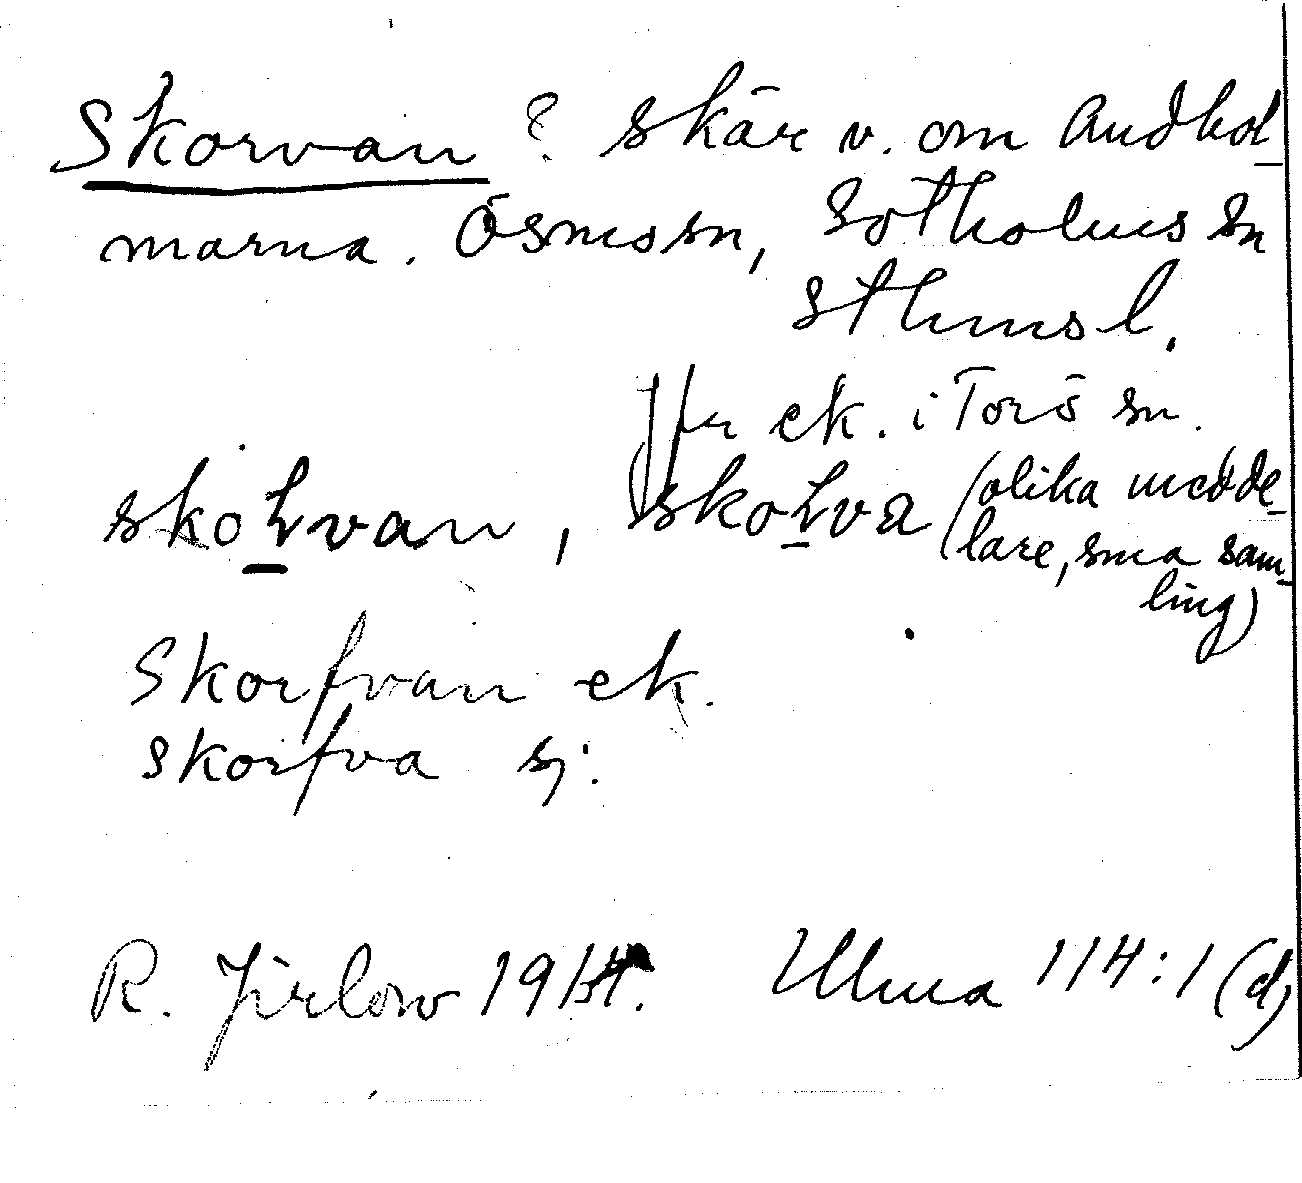 Skorvan ? skär v. om Andhol-
marna. Ösmo sn, Sotholms sn
Sthms l.
Jfr ek. i Torö sn.
skoɽvan, skoɽva (olika medde-
lare, sma sam-
ling)
Skorfvan ek.
skorfva sj:
R. Jirlow 1914. Ulma 114:1 (d)